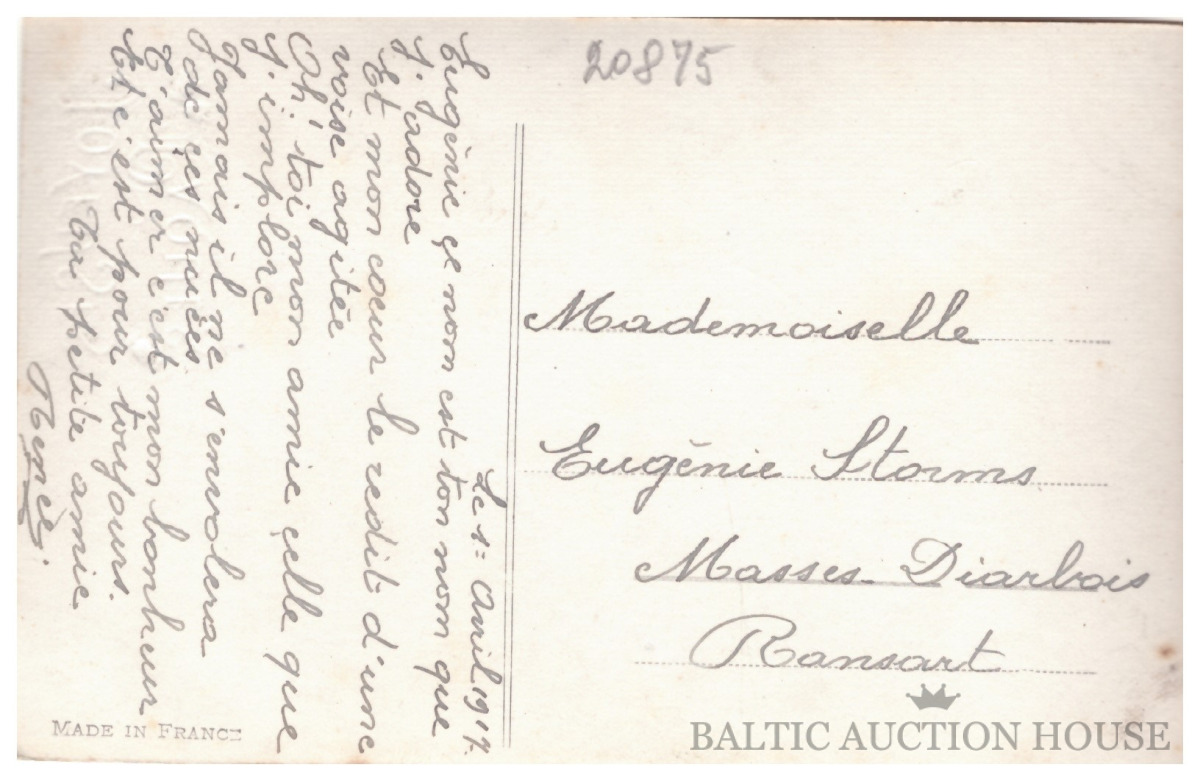 20875
Le 1= Avril 1917.
Eugénie çe nom est ton nom que
j'adore
Et mon coeur le redit d'une
voise agitée
Oh! toi mon amie çelle que
j'implore
Jamais il ne s'envolera
de çes nuées
T'aimer c'est mon bonheur
Et c'est pour toujours.
Ta petite amie
Renée.
Mademoiselle
Eugénie Storms
Masses-Diarbois
Ransart
MADE IN FRANCE
BALTIC AUCTION HOUSE